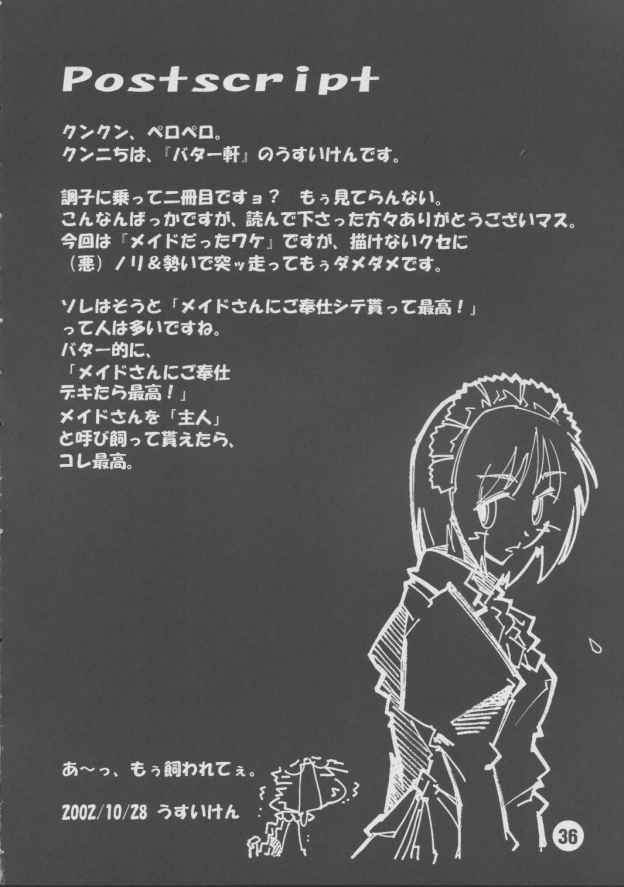 Postscript
クンクン、ペロペロ。
クンニちは、『バター軒』のうすいけんです。
調子に乗って二冊目ですョ？　もぅ見てらんない。
こんなんばっかですが、読んで下さった方々ありがとうございマス。
今回は『メイドだったワケ』ですが、描けないクセに
（悪）ノリ＆勢いで突ッ走ってもぅダメダメです。
ソレはそうと「メイドさんにご奉仕シテ貰って最高！」
って人は多いですね。
バター的に、
「メイドさんにご奉仕
デキたら最高！」
メイドさんを「主人」
と呼び飼って貰えたら、
コレ最高。
あ～っ、もぅ飼われてぇ。
2002/10/28 うすいけん
36